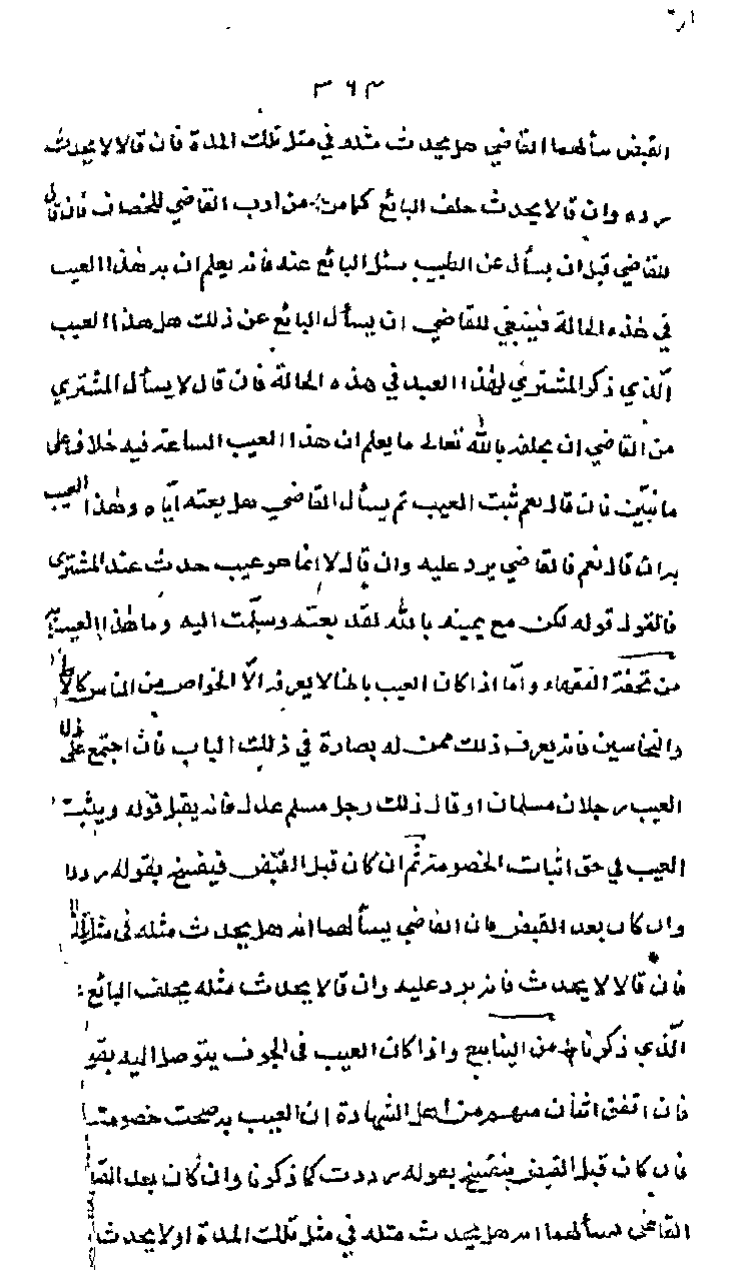 ٣٦٣
القبض سألهما القاضي هل يحدث مثله في مثل تلك المدة فان قالا لا يحدث
رده وان قالا يحدث حلف البائع كما من ادب القاضي للخصاف فان قال
للقاضي قبل ان يسأل عن الطبيب سئل البائع عنه فانه يعلم ان به هذا العيب
في هذه الحالة فينبغي للقاضي ان يسأل البائع عن ذلك هل هذا العيب
الذي ذكر المشتري لهذا العبد في هذه الحالة فان قال لا يسأل المشتري
من القاضي ان يحلفه بالله تعالى ما يعلم ان هذا العيب الساعة فيه خلاف على
ما نبين فان قال نعم ثبت العيب ثم يسأل القاضي هل بعته اياه وهذا العيب
به ان قال نعم فالقاضي يرد عليه وان قال لا انما هو عيب حدث عند المشتري
فالقول قوله لكن مع يمينه بالله لقد بعته وسلمت اليه وما هذا العيب به
من تحفة الفقهاء واما اذا كان العيب باطنا لا يعرفه الا الخواص من الناس
والنخاسين فانه يعرف ذلك ممن له بصارة في ذلك الباب فان اجتمع على ذلك
العيب رجلان مسلمان او قال ذلك رجل مسلم عدل فانه يقبل قوله ويثبت
العيب في حق اثبات الخصومة ثم ان كان قبل القبض فيفسخ بقوله رددت
وان كان بعد القبض فان القاضي يسألهما انه هل يحدث مثله في مثل
فان قالا لا يحدث فانه يرد عليه وان قالا يحدث مثله يحلف البائع
الذي ذكرنا من الينابيع واذا كان العيب في الجوف يتوصل اليه بقو
فان اتفق اثنان منهم من اهل الشهادة ان العيب به صحت خصومته
فان كان قبل القبض ينفسخ بقوله رددت كما ذكرنا وان كان بعد
القاضي يسألهما انه هل يحدث مثله في مثل تلك المدة او لا يحدث